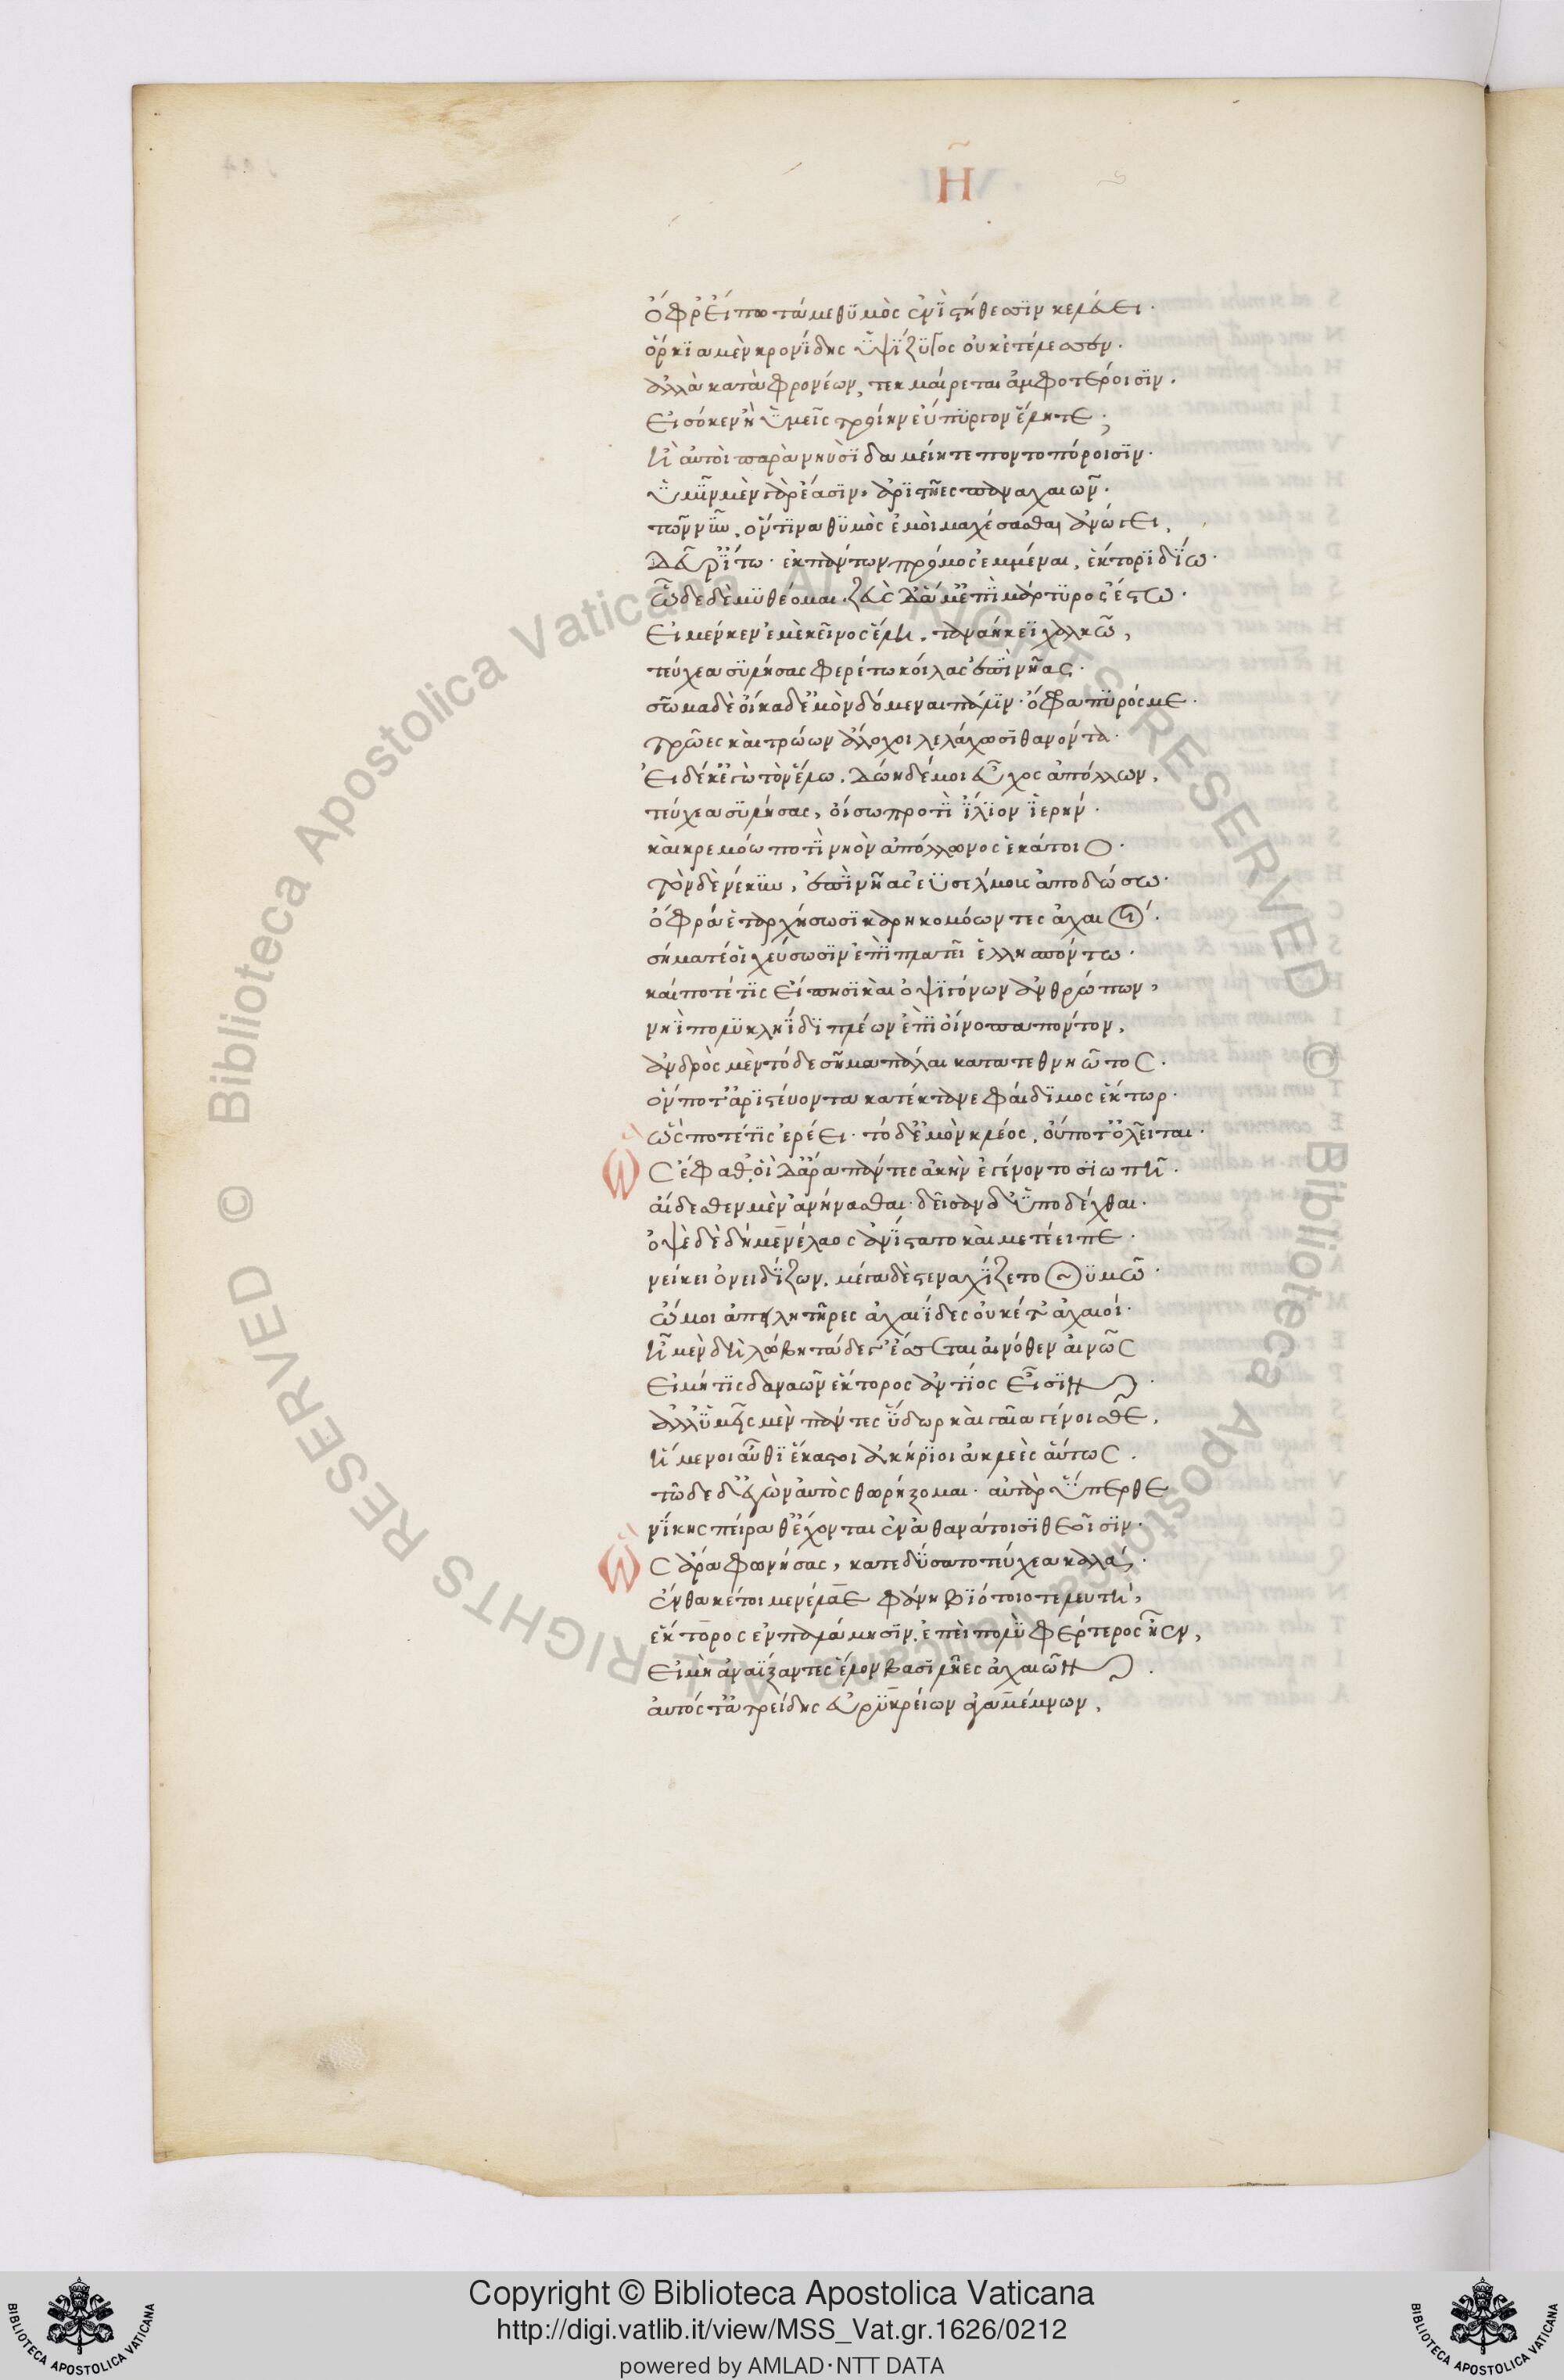 Η
ὄφρ' εἴπω τά με θυμὸς ἐνὶ στήθεσσιν κελεύει·
ὅρκια μὲν κρονίδης ὑψίζυγος οὐκ ἐτέλεσσεν·
ἀλλὰ κακὰ φρονέων, τεκμαίρεται ἀμφοτέροισιν·
εἰσόκεν ἢ ὑμεῖς τροίην εὔπυργον ἕλητε;
ἢ αὐτοὶ παρὰ νηυσὶ δαμείητε ποντοπόροισιν·
ὑμῖν μὲν γὰρ ἔασιν ἀριστῆες παναχαιῶν·
τῶν νῦν, ὅντινα θυμὸς ἐμοὶ μαχέσασθαι ἀνώγει,
δεῦρ' ἴτω· ἐκ πάντων πρόμος ἔμμεναι, ἕκτορι δίω·
ὧδε δὲ μυθέομαι· ζεὺς δ' ἄμμ' ἐπὶ μάρτυρος ἔστω·
εἰ μέν κεν ἐμὲ κεῖνος ἕλη, ταναήκεϊ χαλκῶ,
τεύχεα συλήσας φερέτω κοίλας ἐπὶ νῆας·
σῶμα δὲ οἴκαδ' ἐμὸν δόμεναι πάλιν· ὄφρα πυρός με
τρῶες καὶ τρώων ἄλοχοι λελάχωσι θανόντα·
εἰ δέ κ' ἐγὼ τὸν ἕλω, δώη δέ μοι εὖχος ἀπόλλων,
τεύχεα συλήσας, οἴσω προτὶ ἴλιον ἱερήν·
καὶ κρεμόω ποτὶ νηὸν ἀπόλλωνος ἑκάτοιο·
τὸν δὲ νέκυν, ἐπὶ νῆας ἐϋσέλμους ἀποδώσω·
ὄφρά ἑ ταρχήσωσι καρηκομόωντες ἀχαιοί·
σῆμά τέ οἱ χεύσωσιν ἐπὶ πλατεῖ ἑλλησπόντω·
καί ποτέ τις εἴπησι καὶ ὀψιγόνων ἀνθρώπων,
νηῒ πολυκληΐδι πλέων ἐπὶ οἴνοπα πόντον,
ἀνδρὸς μὲν τόδε σῆμα πάλαι κατατεθνηῶτος·
ὅν ποτ' ἀριστεύοντα κατέκτανε φαίδιμος ἕκτωρ·
ὥς ποτέ τις ἐρέει· τὸ δ' ἐμὸν κλέος, οὔποτ' ὀλεῖται·
Ὣς ἔφαθ', οἱ δ' ἄρα πάντες ἀκὴν ἐγένοντο σιωπῆ·
αἴδεσθεν μὲν ἀνήνασθαι· δεῖσαν δ' ὑποδέχθαι·
ὀψὲ δὲ δὴ μενέλαος ἀνίστατο καὶ μετέειπε·
νείκει ὀνειδίζων, μέγα δὲ στεναχίζετο θυμῶ·
ὤμοι ἀπειλητῆρες ἀχαιΐδες οὐκέτ' ἀχαιοί·
ἦ μὲν δὴ λώβη τάδε γ' ἔσσεται αἰνόθεν αἰνῶς
εἰ μή τις δαναῶν ἕκτορος ἀντίος εἶσιν·
ἀλλ' ὑμεῖς μὲν πάντες ὕδωρ καὶ γαῖα γένοισθε,
ἥμενοι αὖθι ἕκαστοι ἀκήριοι ἀκλεὲς αὔτως·
τῶδε δ' ἐγὼν αὐτὸς θωρήξομαι· αὐτὰρ ὕπερθε
νίκης πείρατ' ἔχονται ἐν ἀθανάτοισι θεοῖσιν·
Ὣς ἄρα φωνήσας, κατεδύσατο τεύχεα καλά·
ἔνθα κέ τοι μενέλαε φάνη βιότοιο τελευτή,
ἕκτορος ἐν παλάμησιν, ἐπεὶ πολὺ φέρτερος ἦεν,
εἰ μὴ ἀναΐξαντες ἕλον βασιλῆες ἀχαιῶν·
αὐτός τ' ἀτρείδης εὐρὺ κρείων ἀγαμέμνων,
Copyright © Biblioteca Apostolica Vaticana
http://digi.vatlib.it/view/MSS_Vat.gr.1626/0212
powered by AMLAD·NTT DATA